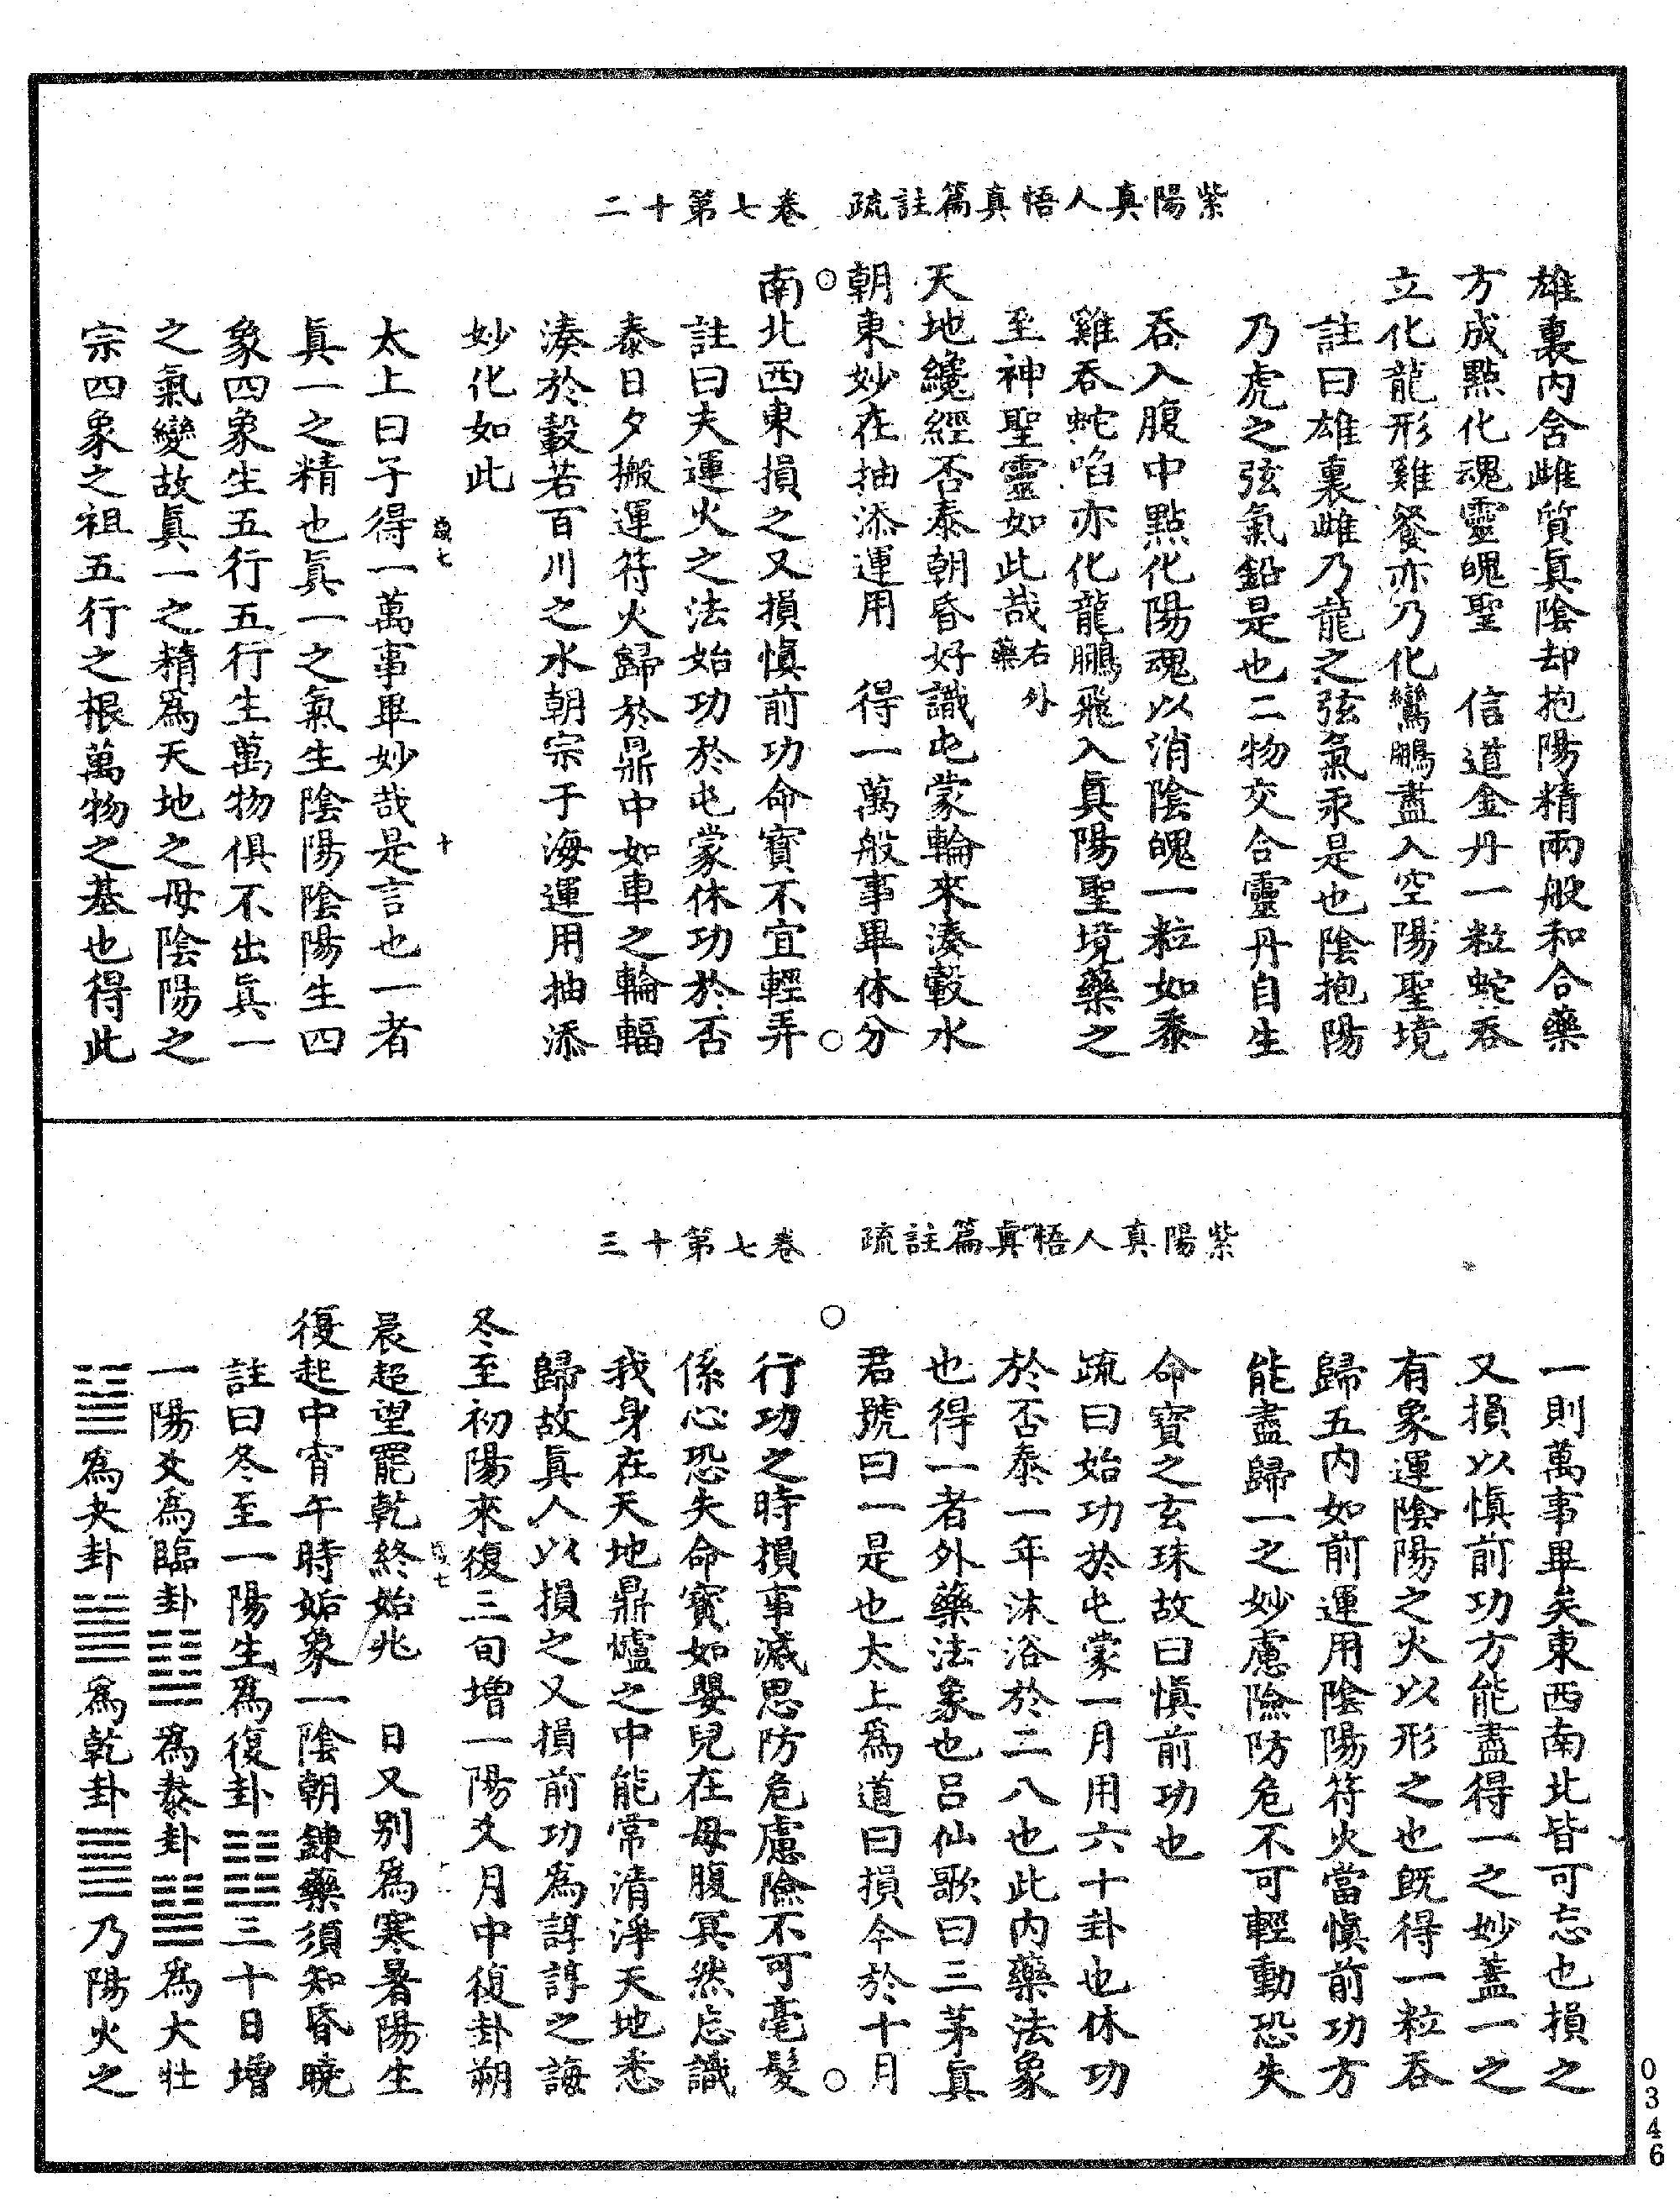 紫陽真人悟真篇註疏　卷七第十二
雄裏内含雌質真陰却抱陽精兩般和合藥
方成點化魂靈魄聖　信道金丹一粒蛇吞
立化龍形雞餐亦乃化鸞鵬盡入空陽聖境
註曰雄裏雌乃龍之弦氣汞是也陰抱陽
乃虎之弦氣鉛是也二物交合靈丹自生
吞入腹中點化陽魂以消陰魄一粒如黍
雞吞蛇啗亦化龍鵬飛入眞陽聖境藥之
至神聖靈如此哉右外藥
天地纔經否泰朝昏好識屯蒙輪來湊轂水
朝東妙在抽添運用　得一萬般事畢休分
南北西東損之又損慎前功命寳不宜輕弄
註曰夫運火之法始功於屯蒙休功於否
泰日夕搬運符火歸於鼎中如車之輪輻
湊於轂若百川之水朝宗于海運用抽添
妙化如此
歲七　十
太上曰子得一萬事畢妙哉是言也一者
眞一之精也眞一之氣生陰陽陰陽生四
象四象生五行五行生萬物俱不出眞一
之氣變故眞一之精爲天地之母陰陽之
宗四象之祖五行之根萬物之基也得此
紫陽真人悟真篇註疏　卷七第十三
一則萬事畢矣東西南北皆可忘也損之
又損以慎前功方能盡得一之妙蓋一之
有象運陰陽之火以形之也旣得一粒吞
歸五内如前運用陰陽符火當慎前功方
能盡歸一之妙慮險防危不可輕動恐失
命寳之玄珠故曰慎前功也
疏曰始功於屯蒙一月用六十卦也休功
於否泰一年沐浴於二八也此内藥法象
也得一者外藥法象也吕仙歌曰三茅眞
君號曰一是也太上爲道曰損今於十月
行功之時損事減思防危慮險不可毫髮
係心恐失命寳如嬰兒在母腹冥然忘識
我身在天地鼎爐之中能常清淨天地悉
歸故眞人以損之又損前功爲諄諄之誨
冬至初陽來復三旬增一陽爻月中復卦朔
晨超望罷乾終始兆　日又别爲寒暑陽生
復起中宵午時姤象一陰朝鍊藥須知昏曉
註曰冬至一陽生爲復卦䷗三十日增
一陽爻爲臨卦䷒爲泰卦䷊爲大壯
䷡爲夬卦䷪爲乾卦䷀乃陽火之
0346